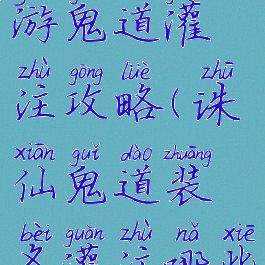 游鬼道灌
zhù gōng lüè zhū
注攻略(诛
xiān guǐ dào zhuāng
仙鬼道装
bèi guàn zhù nǎ xiē
备灌注哪些